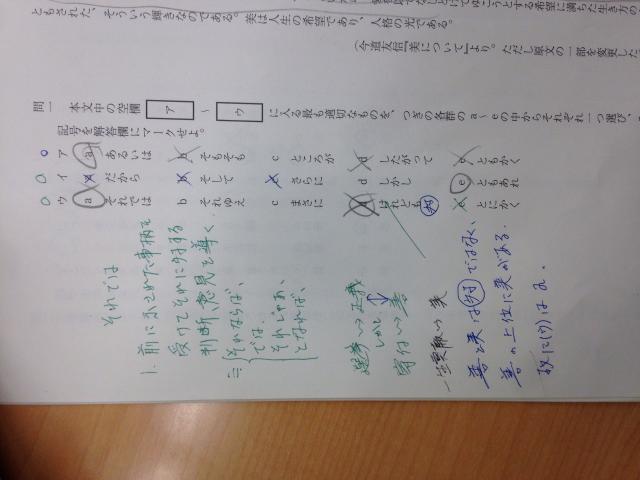 ともされた、そういう輝きなのである。美は人生の希望であり、人格の光である。
(今道友信『美について』より。ただし原文の一部を変更した
問一 本文中の空欄 ア ~ ウ に入る最も適切なものを、つぎの各群のa~eの中からそれぞれ一つ選び、
記号を解答欄にマークせよ。
ア a あるいは b そもそも c ところが d したがって e ともかく
イ a だから b そして c さらに d しかし e ともあれ
ウ a それでは b それゆえ c まさに d けれども e とにかく
それでは
1. 前に示された事柄を
受けてそれに対する
判断、意見を導く.
それならば、
では、
それじゃあ、
となれば、
しかし
善と美は対ではなく、
善の上位に美がある.
故に(ウ)はa.